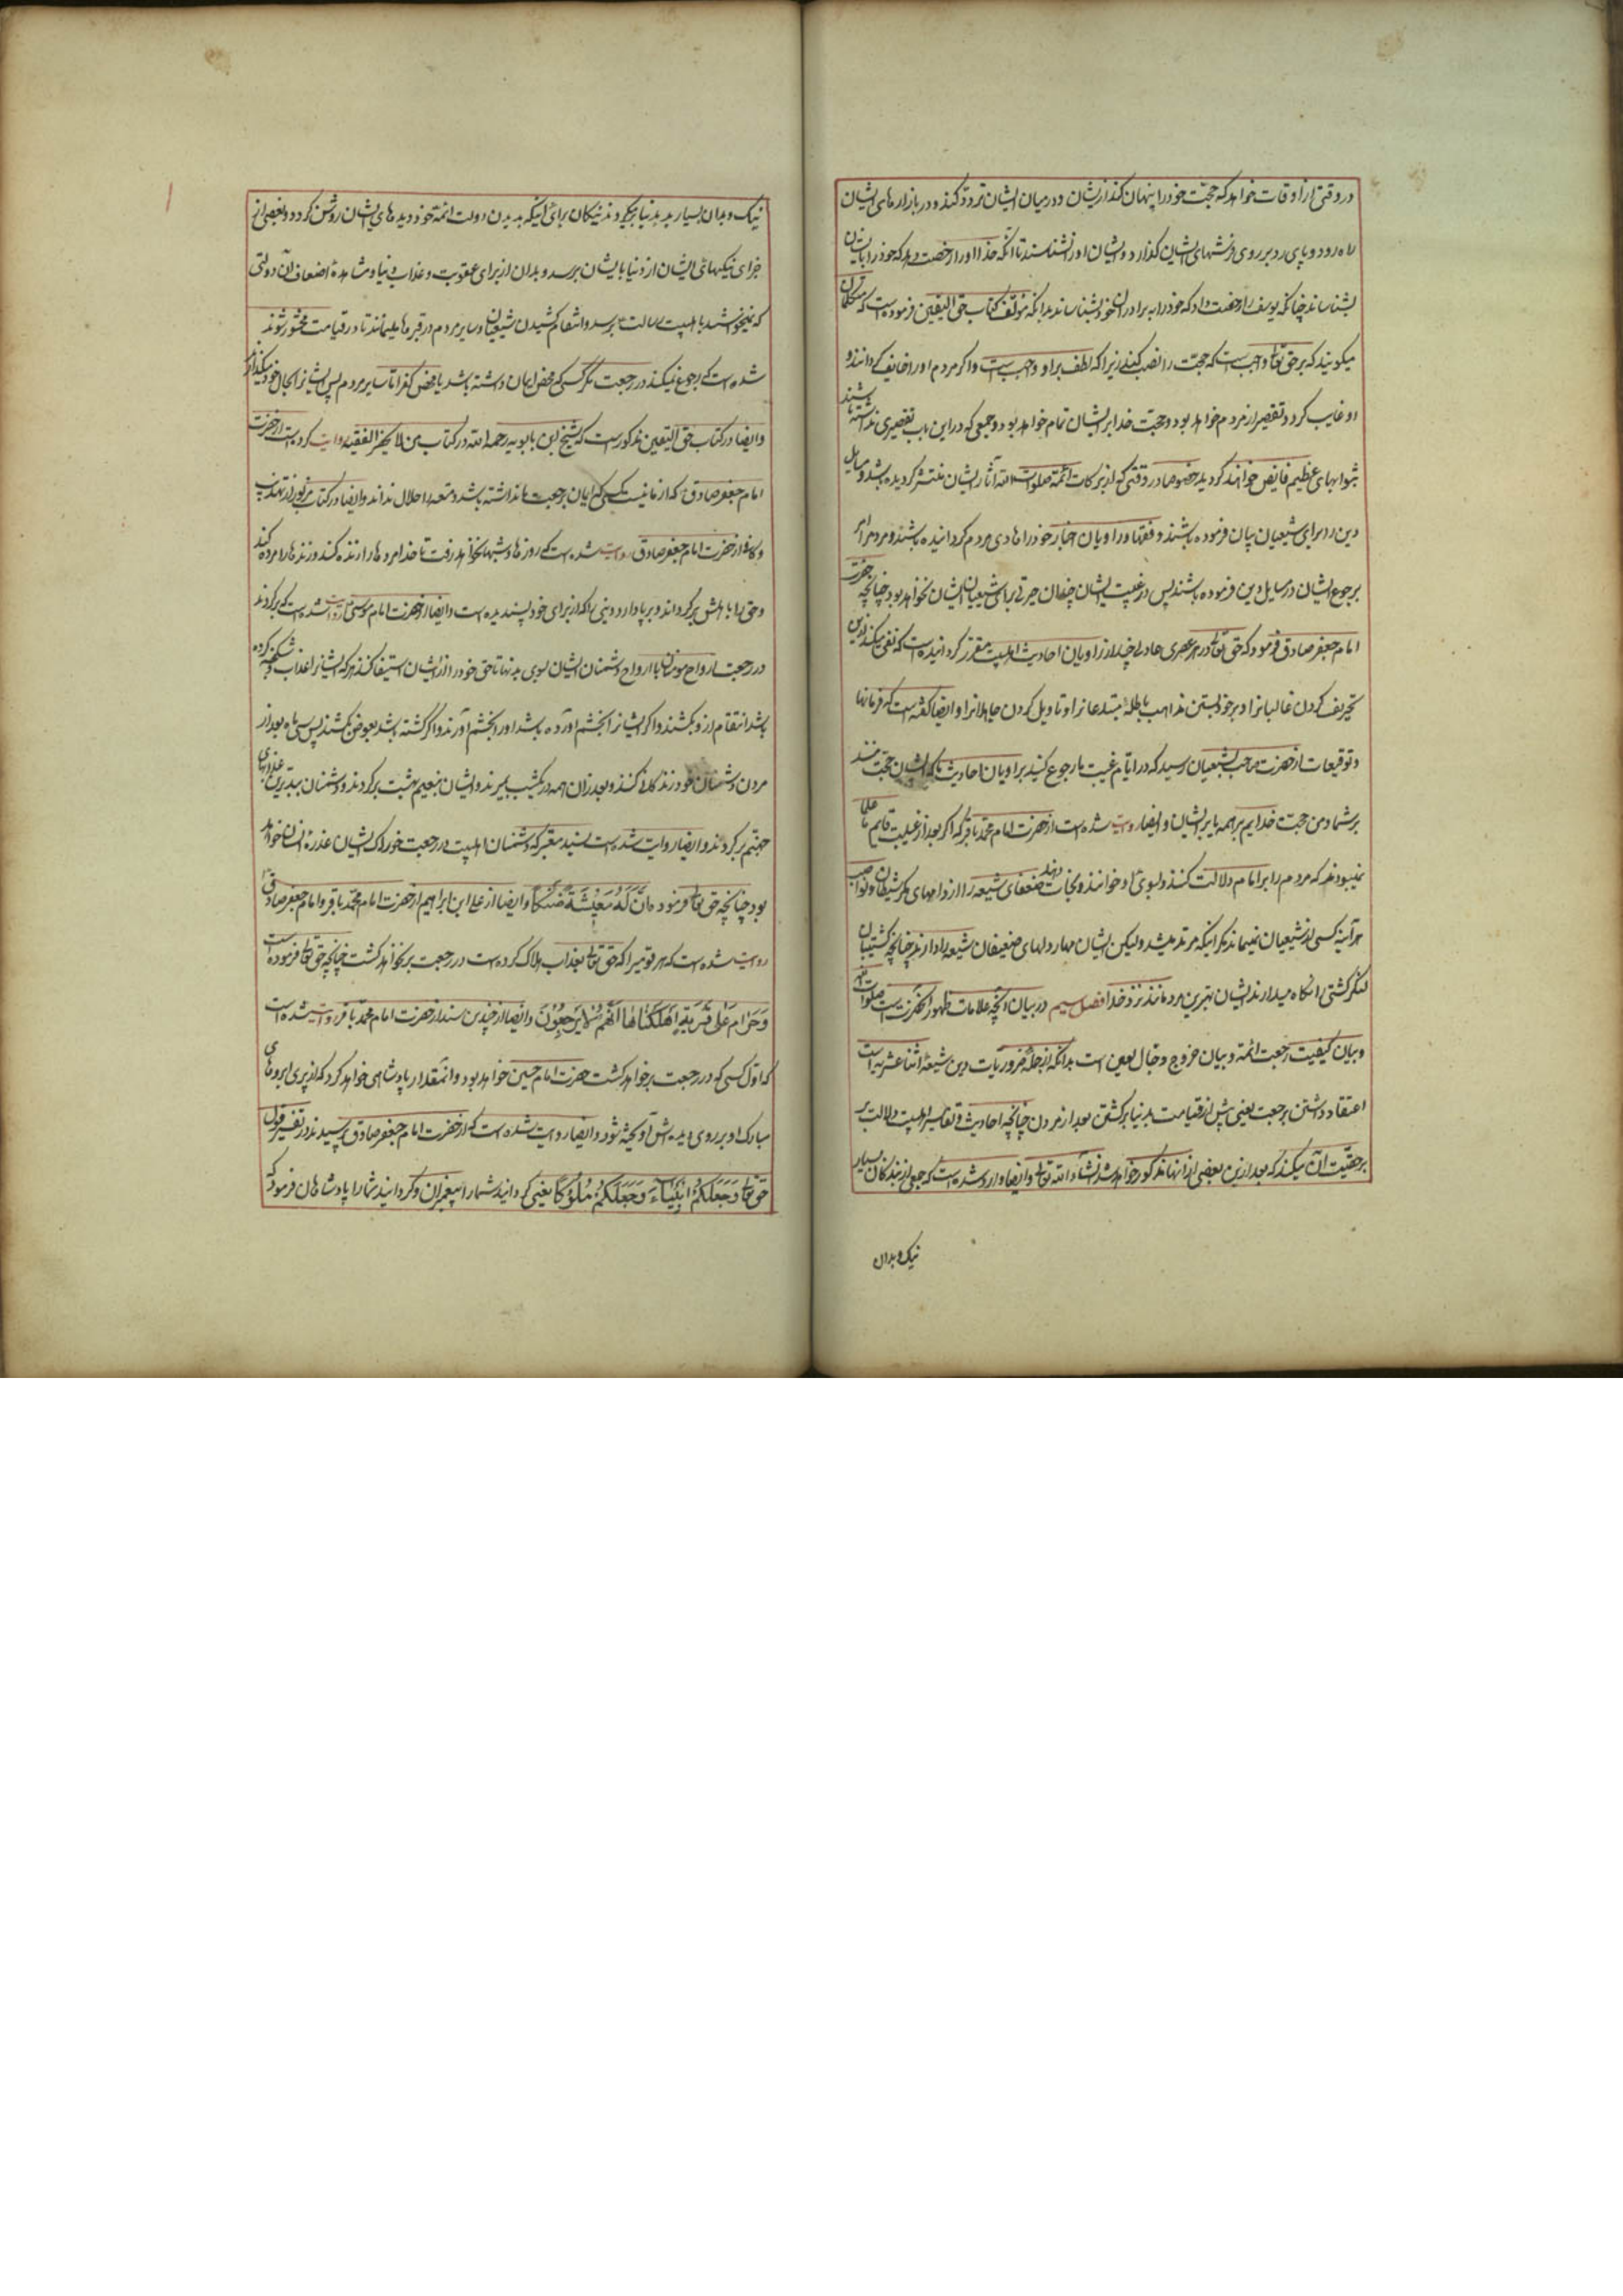 در وقتی از اوقات خواهد که حجت خود را پنهان کند از ایشان و در میان ایشان تردد کند و در بازارهای ایشان
راه رود و پای برد بر روی فرشهای ایشان گذارد و ایشان او را نشناسند تا آنکه خدا او را رخصت دهد که خود را بایشان
بشناساند چنانکه یوسف را رخصت داد که خود را به برادران خود بشناساند بدانکه مؤلف کتاب حق الیقین فرموده است که متکلمان
میگویند که بر حق تعالی واجبست که حجت را نصب کند زیرا که لطف بر او واجبست و اگر مردم او را خایف گردانند و
او غایب گردد تقصیر از مردم خواهد بود و حجت خدا بر ایشان تمام خواهد بود و جمعی که در این باب تقصیری نداشته باشند
بثوابهای عظیم فایض خواهند گردید خصوصا در وقتی که از برکات ائمه صلوات الله آثار ایشان منتشر گردیده باشد و مسایل
دین را برای شیعیان بیان فرموده باشند و فقها و راویان اخبار خود را هادی مردم گردانیده باشند و مردم را امر
برجوع ایشان در مسایل دین فرموده باشند پس در غیبت ایشان چندان حیرتی برای شیعیان ایشان نخواهد بود چنانچه حضرت
امام جعفر صادق فرمود که حق تعالی در هر عصری عادلی چند از راویان احادیث اهلبیت مقرر گردانیده است که نفی میکنند از دین
تحریف کردن غالیانرا و بر خود بستن مذاهب باطله مبتدعانرا و تاویل کردن جاهلانرا و ایضا گفته است که فرمانها
و توقیعات از حضرت صاحب بشیعیان رسید که در ایام غیبت ما رجوع کنید براویان احادیث ما که ایشان حجت منند
بر شما و من حجت خدایم بر همه یا بر ایشان و ایضا روایت شده است از حضرت امام محمد باقر که اگر بعد از غیبت قایم ما علما
نمیبودند که مردم را بر امام دلالت کنند و بسوی او خوانند و نجات دهند ضعفای شیعه را از دامهای مکر شیطان و نواصب
هر آینه کسی از شیعیان نمیماند مگر اینکه مرتد میشد ولیکن ایشان مهار دلهای ضعیفان شیعه را دارند چنانچه کشتیبان
لنگر کشتی را نگاه میدارند ایشان بهترین مردمانند نزد خدا فصل سیم در بیان آنچه علامات ظهور آنحضرت است صلوات الله
و بیان کیفیت رجعت ائمه و بیان خروج دجال لعین است بدانکه از جمله ضروریات دین شیعه اثنا عشریه است
اعتقاد داشتن برجعت یعنی پیش از قیامت بدنیا برگشتن بعد از مردن چنانچه احادیث و تفاسیر اهلبیت دلالت بر
بر حقیت آن میکند که بعد ازین بعضی از آنها مذکور خواهد شد انشاء الله تعالی و ایضا وارد شده است که جمعی از بندگان بسیار
نیک و بدان
نیک و بدان بسیار بد بدنیا برمیگردند نیکان برای اینکه بدیدن دولت ائمه خود دیده های ایشان روشن گردد و بعضی از
جزای نیکیهای ایشان از دنیا بایشان برسد و بدان از برای عقوبت و عذاب دنیا و مشاهده اضعاف آن دولتی
که نمیخواستند باهلبیت رسالت برسد و انتقام کشیدن شیعیان و سایر مردم در قبرها میمانند تا در قیامت محشور شوند
شده است که رجوع نمیکند در رجعت مگر کسی که محض ایمان داشته باشد یا محض کفر اما سایر مردم پس ایشانرا بحال خود میگذارند
و ایضا در کتاب حق الیقین مذکور است که شیخ ابن بابویه رحمه الله در کتاب من لا یحضر الفقیه روایت کرده است از حضرت
امام جعفر صادق که از ما نیست کسی که ایمان برجعت ما نداشته باشد و متعه را حلال نداند و ایضا در کتاب مزبور از تهذیب
و کافی از حضرت امام جعفر صادق روایت شده است که روزها و شبها نخواهد رفت تا خدا مرده ها را زنده کند و زنده ها را مرده کند
و حق را باهلش برگرداند و برپا دارد دینی را که از برای خود پسندیده است و ایضا از حضرت امام موسی روایت شده است که برگردند
در رجعت ارواح مومنان با ارواح دشمنان ایشان بسوی بدنها تا حق خود را از ایشان استیفا کنند هر که ایشانرا عذاب و شکنجه کرده
باشد انتقام ازو بکشند و اگر ایشانرا بخشم آورده باشد او را بخشم آورند و اگر کشته باشد بعوض بکشند پس سی ماه بعد از
مردن دشمنان خود زندگانی کنند و بعد از آن همه در یکشب بمیرند و ایشان بنعیم بهشت برگردند و دشمنان ببدترین عذابهای
جهنم برگردند و ایضا روایت شده است بسند معتبر که دشمنان اهلبیت در رجعت خوراک ایشان عذره انسان خواهد
بود چنانچه حق تعالی فرموده فَاِنَّ لَهُ مَعِیشَةً ضَنْکًا و ایضا از علی ابن ابراهیم از حضرت امام محمد باقر و امام جعفر صادق
روایت شده است که هر قومیرا که حق تعالی بعذاب هلاک کرده است در رجعت بر نخواهد گشت چنانچه حق تعالی فرموده است
وَحَرَامٌ عَلٰی قَرْیَةٍ اَهْلَکْنَاهَا اَنَّهُمْ لَا یَرْجِعُونَ و ایضا از چندین سند از حضرت امام محمد باقر روایت شده است
که اول کسی که در رجعت بر خواهد گشت حضرت امام حسین خواهد بود و آنمقدار پادشاهی خواهد کرد که از پیری ابروهای
مبارک او بر روی دیده اش آویخته شود و ایضا روایت شده است که از حضرت امام جعفر صادق پرسیدند در تفسیر قول
حق تعالی وَجَعَلَکُمْ اَنْبِیَاءَ وَجَعَلَکُمْ مُلُوکًا یعنی گردانید شما را پیغمبران و گردانید شما را پادشاهان فرمود که